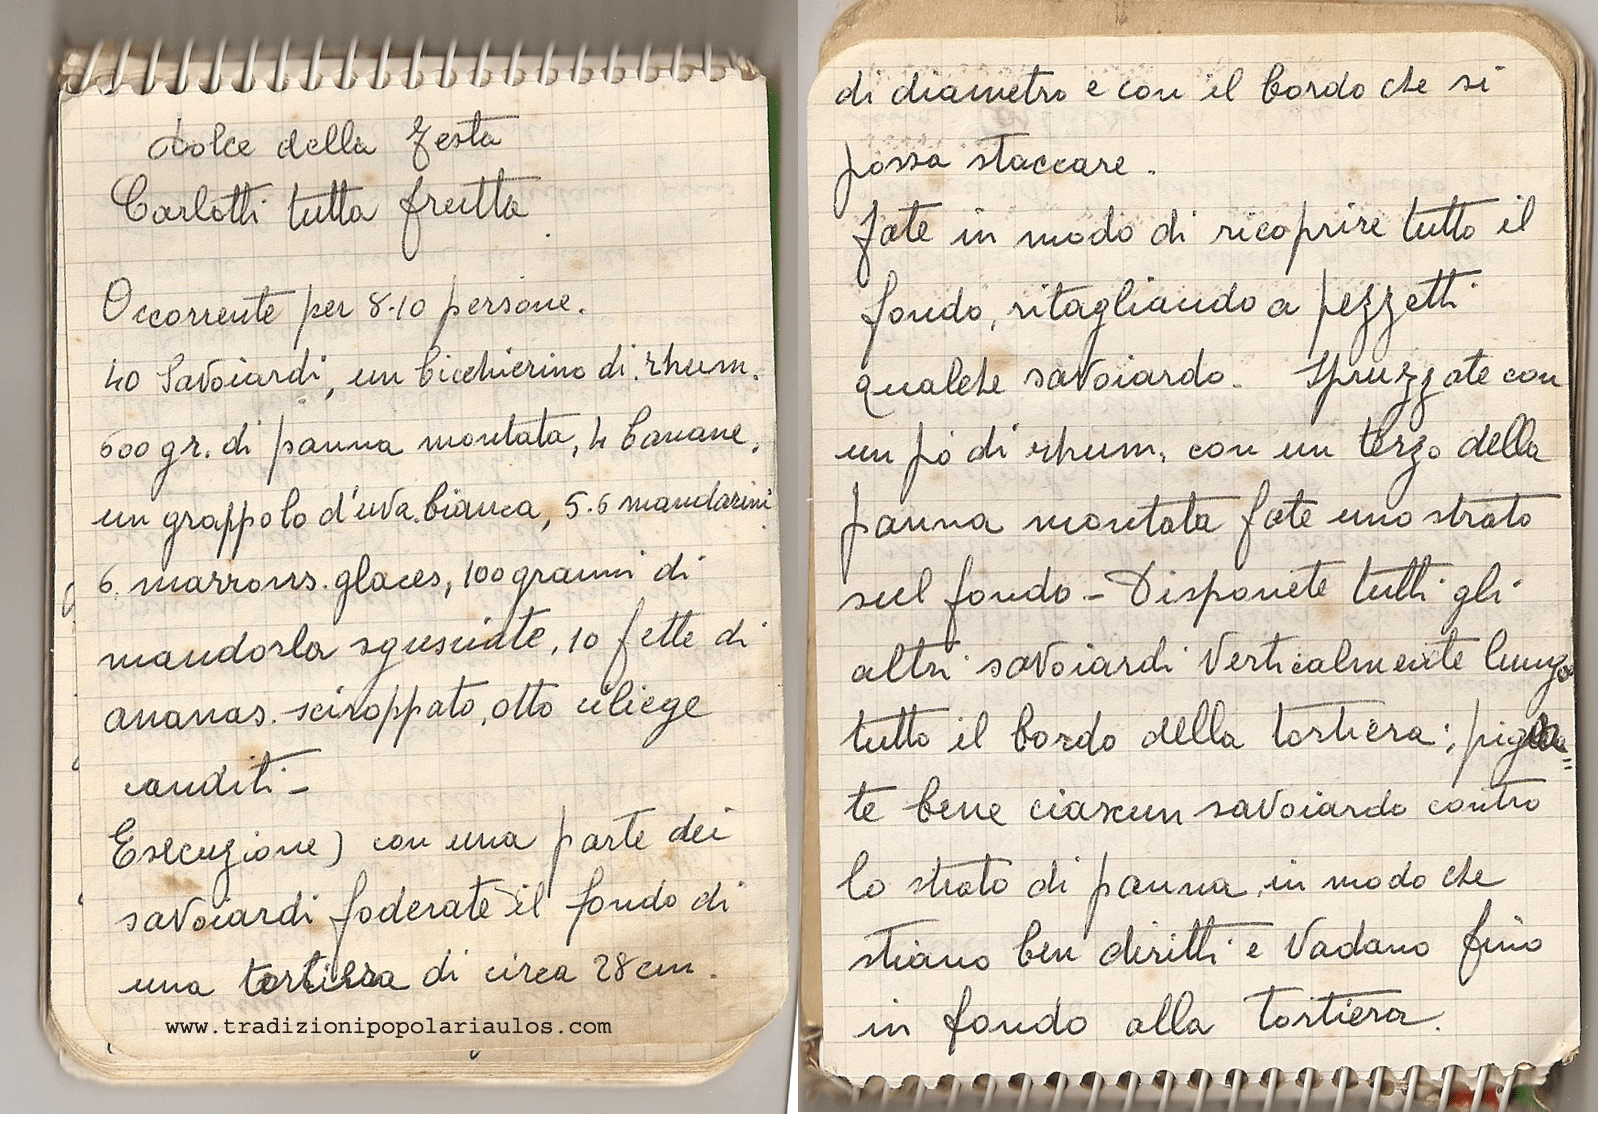 dolce della festa
Carlotti tutta frutta
Occorrente per 8-10 persone.
40 Savoiardi, un bicchierino di rhum.
600 gr. di panna montata, 4 banane,
un grappolo d'uva bianca, 5.6 mandarini
6 marrons glaces, 100 grammi di
mandorla sgusciate, 10 fette di
ananas sciroppato, otto ciliege
canditi -
Esecuzione) con una parte dei
savoiardi foderate il fondo di
una tortiera di circa 28 cm.
www.tradizionipopolariaulos.com
di diametro e con il bordo che si
possa staccare.
fate in modo di ricoprire tutto il
fondo, ritagliando a pezzetti
qualche savoiardo. Spruzzate con
un pò di rhum, con un terzo della
panna montata fate uno strato
sul fondo - Disponete tutti gli
altri savoiardi verticalmente lungo
tutto il bordo della tortiera;
te bene ciascun savoiardo contro
lo strato di panna in modo che
stiano ben diritti e vadano fino
in fondo alla tortiera.